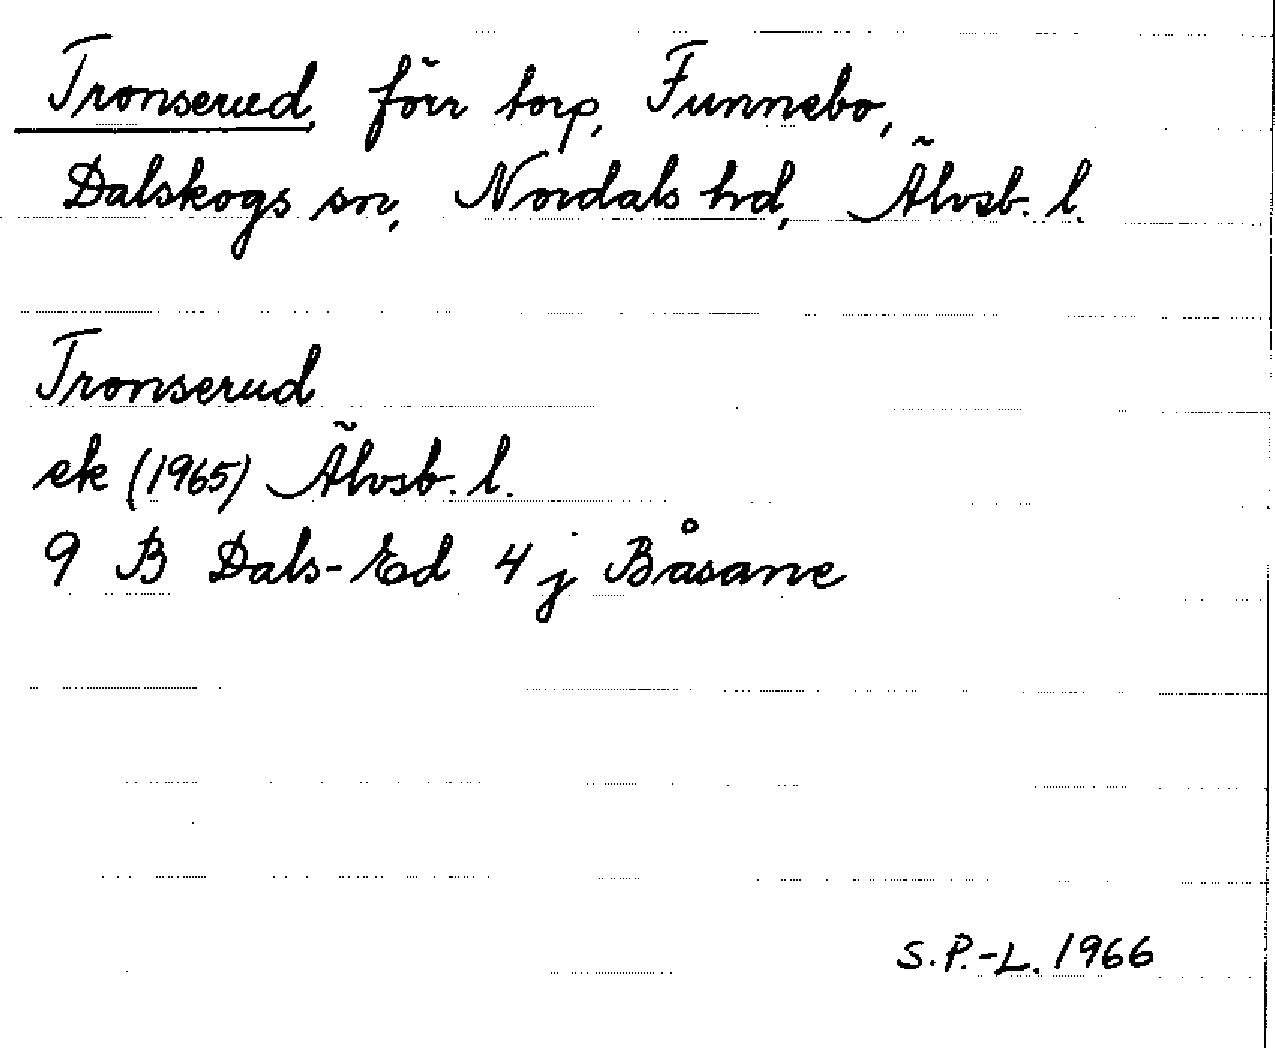 Tronserud, förr torp, Funnebo,
Dalskogs sn, Nordals hd, Älvsb. l.
Tronserud
ek (1965) Älvsb. l.
9 B Dals-Ed 4 j Båsane
S.P.-L. 1966